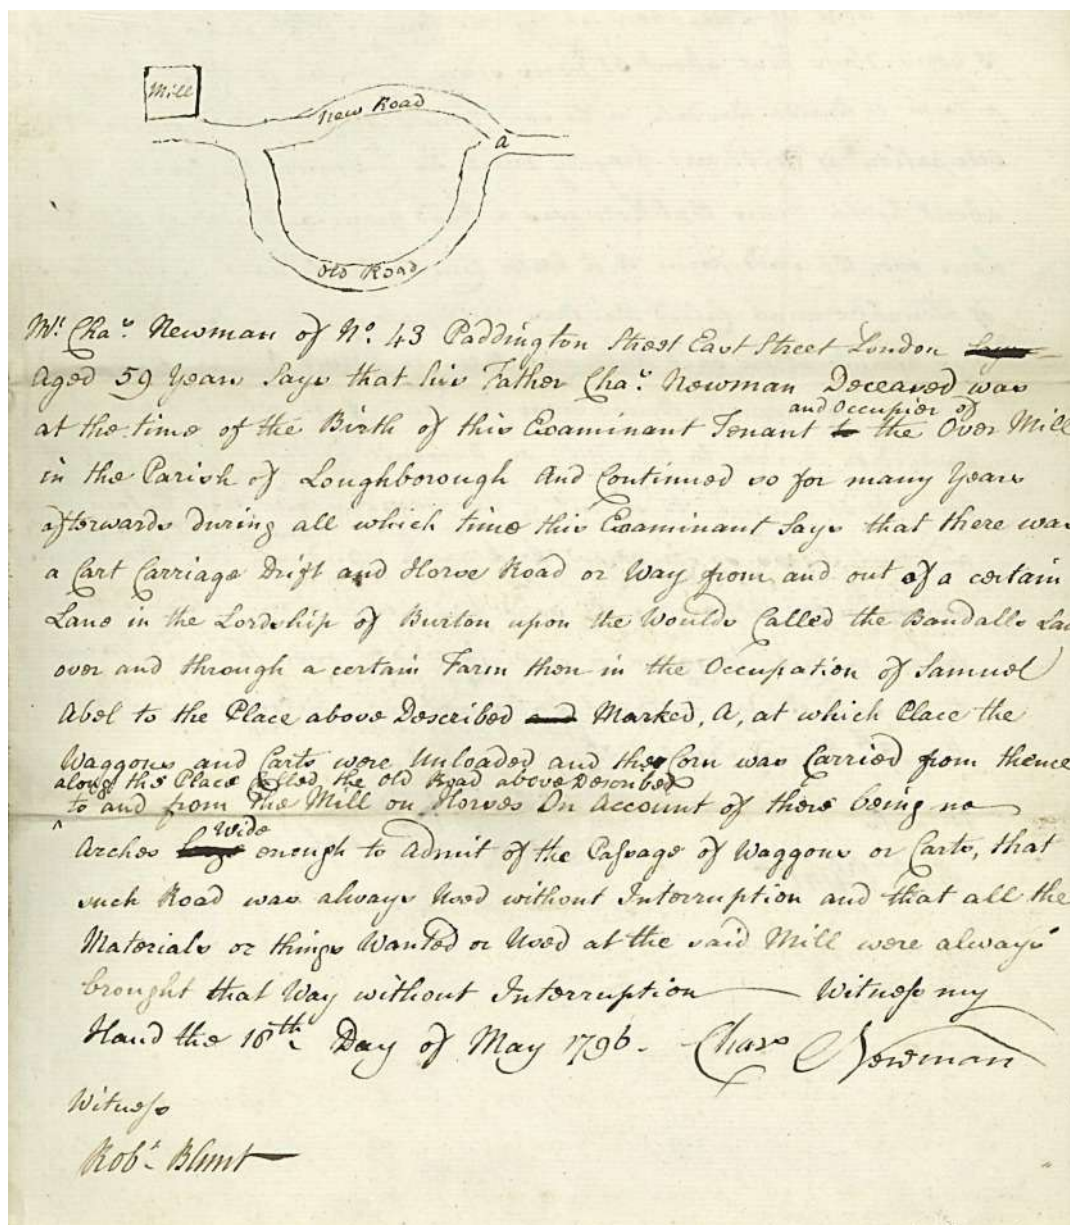 Mill
New Road
a
Old Road
Mr. Chas. Newman of No. 43 Paddington Street East Street London
Aged 59 Years Says that his Father Chas. Newman Deceased was
and Occupier of
at the time of the Birth of this Examinant Tenant to the Over Mill
in the Parish of Loughborough And Continued so for many Years
afterwards During all which time this Examinant Says that there was
a Cart Carriage Drift and Horse Road or Way from and out of a certain
Lane in the Lordship of Burton upon the Woulds Called the Bandalls
over and through a certain Farm then in the Occupation of Samuel
Abel to the Place above Described and Marked, A, at which Place the
Waggons and Carts were Unloaded and the Corn was Carried from thence
along the Place Called the Old Road above Described
to and from the Mill on Horses On Account of there being no
Wide
Arches enough to Admit of the Paſsage of Waggons or Carts, that
such Road was always Used without Interruption and that all the
Materials or things Wanted or Used at the said Mill were always
brought that Way without Interruption — Witneſs my
Hand the 18th Day of May 1796. Chas Newman
Witneſs
Robt. Blunt